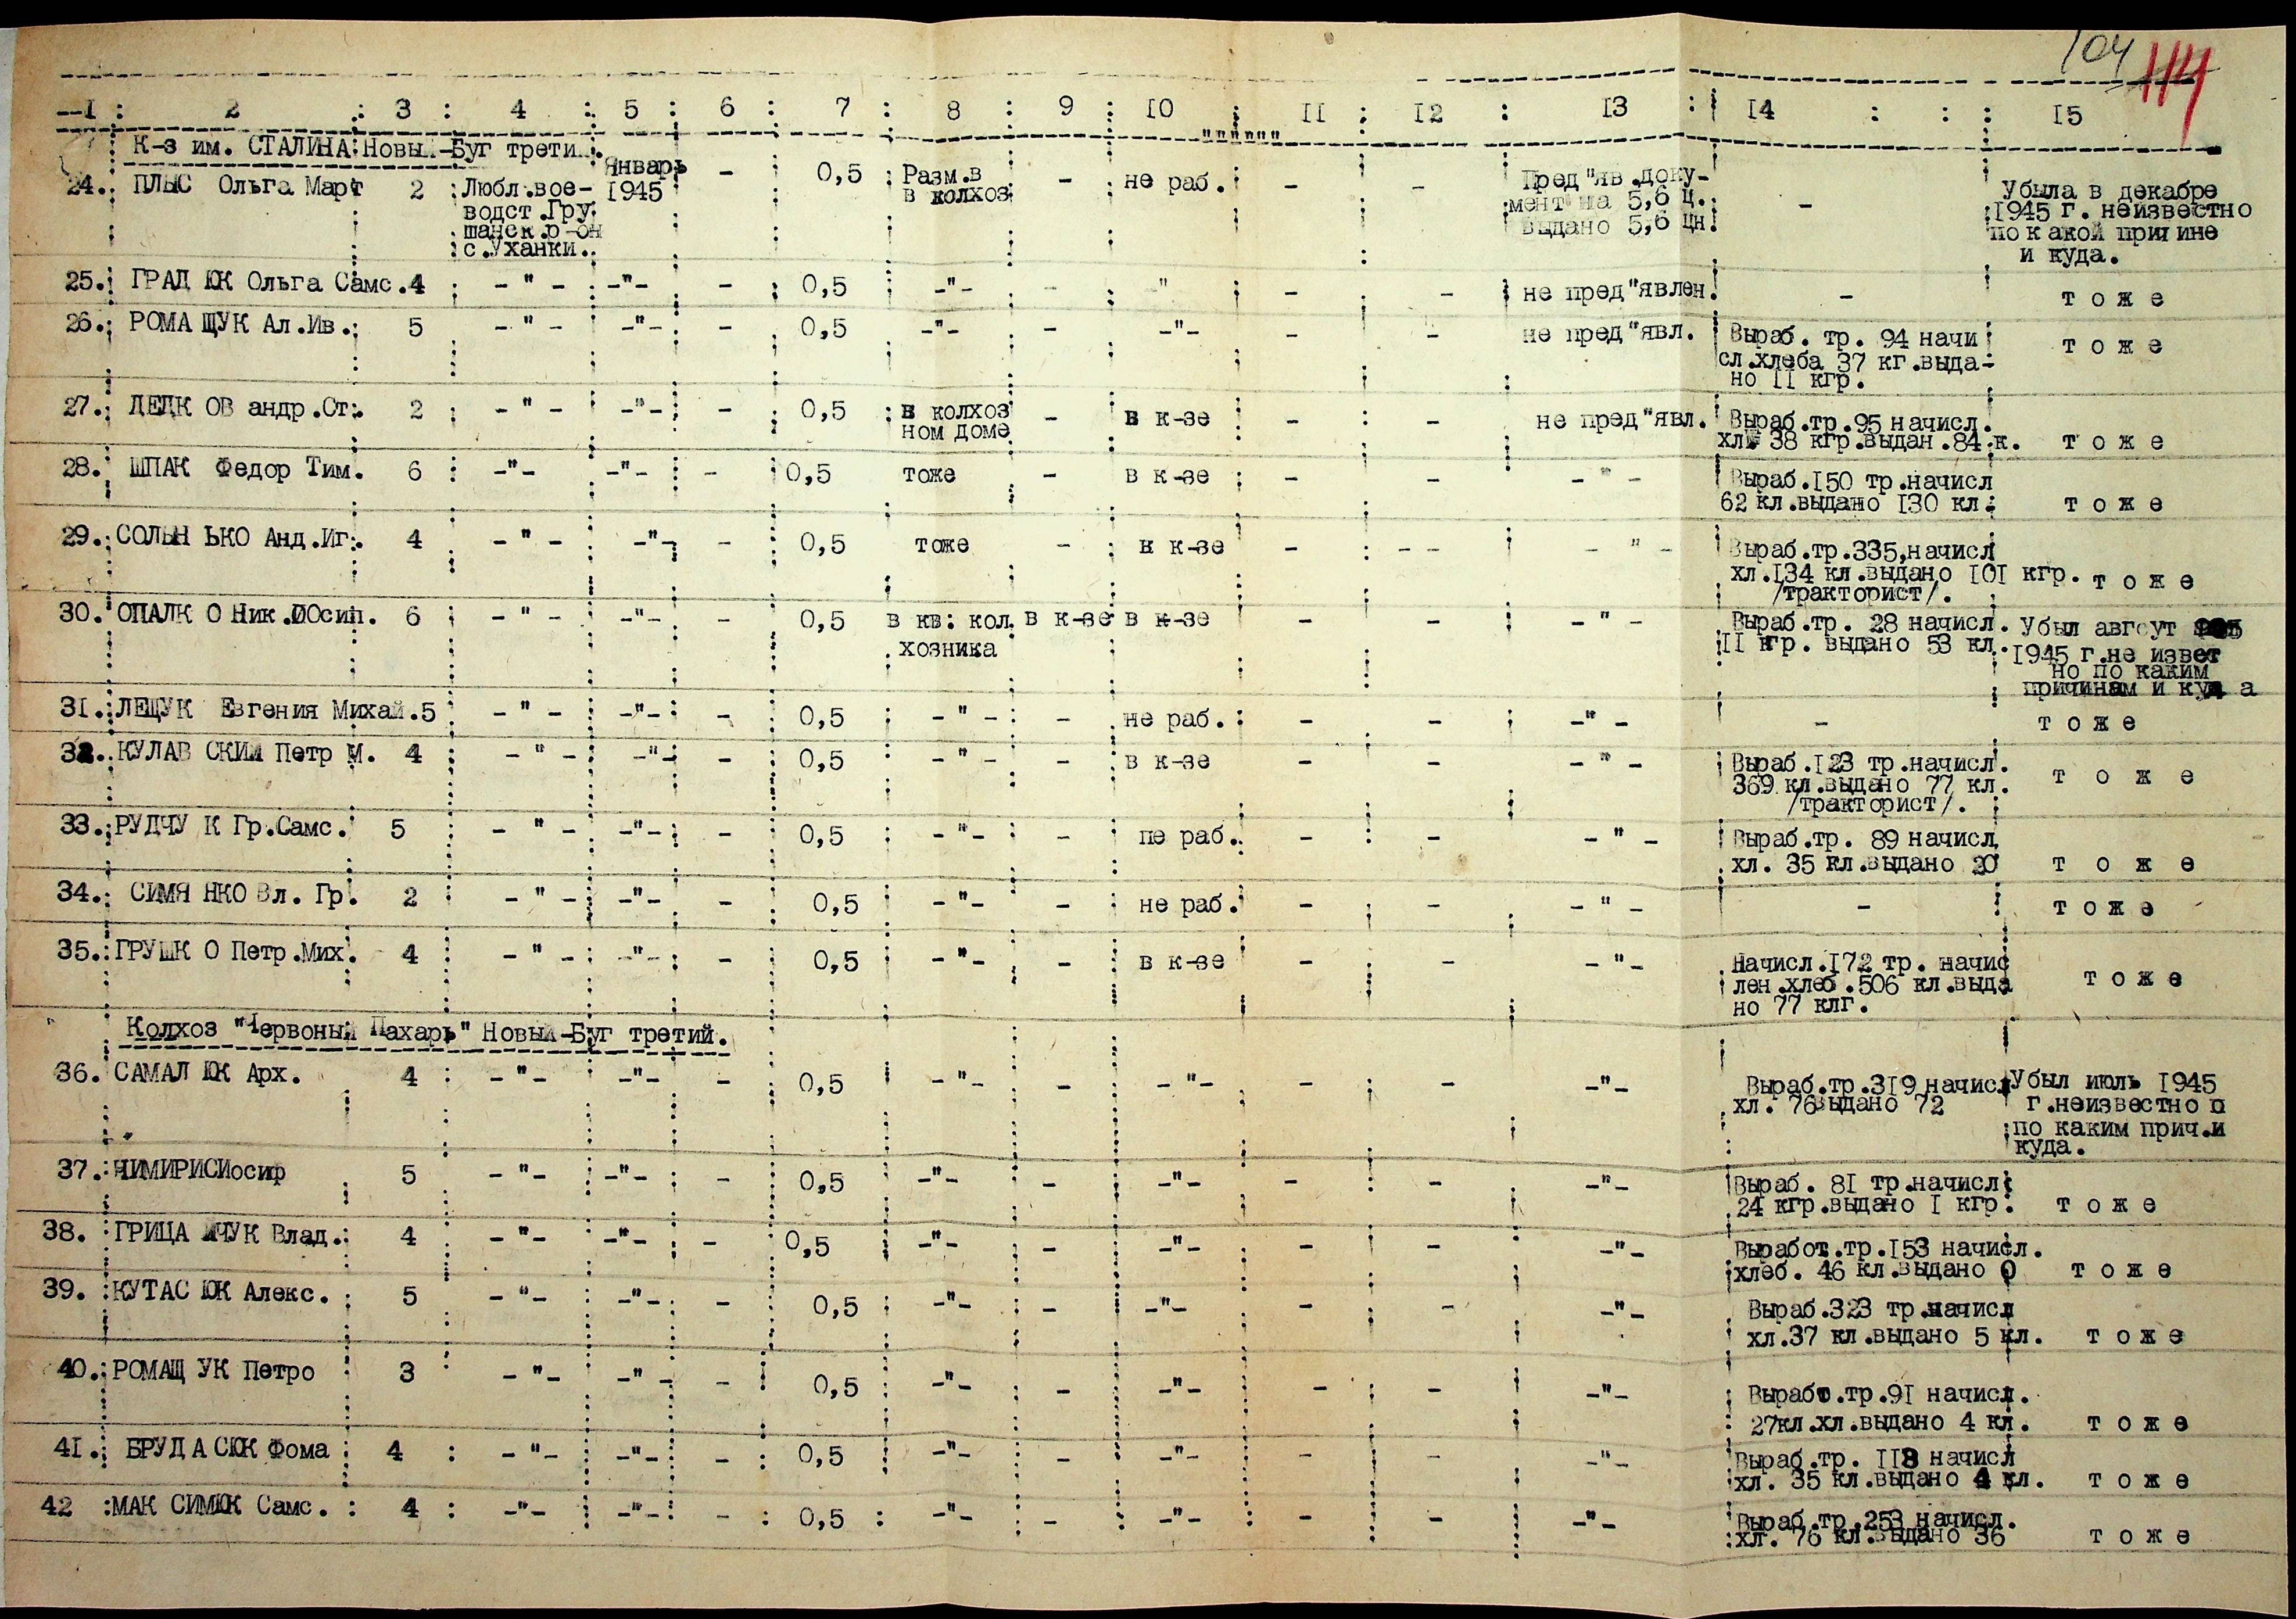 104
114
1 : 2 : 3 : 4 : 5 : 6 : 7 : 8 : 9 : 10 : 11 : 12 : 13 : 14 : : : 15
К-з им. СТАЛИНА Новый-Буг трети
24. ПЛЫС Ольга Март 2 Любл.вое- Январь - 0,5 Разм.в - не раб. - - Пред"яв.доку- - Убыла в декабре
водст.Гру 1945 в колхоз мент на 5,6 ц. 1945 г. неизвестно
шанск.р-он выдано 5,6 цн по какой причине
с.Уханки. и куда.
25. ГРАД ЮК Ольга Самс. 4 -"- -"- - 0,5 -"- - " - - не пред"явлен. - т о ж е
26. РОМА ЩУК Ал.Ив. 5 -"- -"- - 0,5 -"- - -"- - - не пред"явл. Выраб. тр. 94 начи т о ж е
сл.хлеба 37 кг.выда-
но 11 кгр.
27. ДЕДК ОВ андр.Ст. 2 -"- -"- - 0,5 в колхоз - в к-зе - - не пред"явл. Выраб.тр.95 начисл.
ном доме хл. 38 кгр.выдан.84 к. т о ж е
28. ШПАК Федор Тим. 6 -"- -"- - 0,5 тоже - в к-зе - - -"- Выраб.150 тр.начисл
62 кл.выдано 130 кл. т о ж е
29. СОЛЫН ЬКО Анд.Иг. 4 -"- -"- - 0,5 тоже - в к-зе - -- -"- Выраб.тр.335,начисл
хл.134 кл.выдано 101 кгр. т о ж е
/тракторист/.
30. ОПАЛК О Ник.Осип. 6 -"- -"- 0,5 в кв. кол. в к-зе в к-зе - - -"- Выраб.тр. 28 начисл. Убыл авгсут
хозника 11 кгр. выдано 53 кл. 1945 г.не извет
но по каким
причинам и куд а
31. ЛЕЩУК Евгения Михай. 5 -"- -"- - 0,5 -"- - не раб. - - -"- - т о ж е
32. КУЛАВ СКИЙ Петр М. 4 -"- -"- - 0,5 -"- - в к-зе - - -"- Выраб.123 тр.начисл. т о ж е
369 кл.выдано 77 кл.
/тракторист/.
33. РУДЧУ К Гр.Самс. 5 -"- -"- - 0,5 -"- - пе раб. - - -"- Выраб.тр. 89 начисл
хл. 35 кл.выдано 20 т о ж е
34. СИМЯ НКО Вл. Гр. 2 -"- -"- - 0,5 -"- - не раб. - - -"- - т о ж е
35. ГРУШК О Петр.Мих. 4 -"- -"- - 0,5 -"- - в к-зе - - -"- Начисл.172 тр. начис т о ж е
лен.хлеб.506 кл.выда
но 77 клг.
Колхоз "Червоный Пахарь" Новый-Буг третий.
36. САМАЛ ЮК Арх. 4 -"- -"- - 0,5 -"- - -"- - - -"- Выраб.тр.319 начисл Убыл июль 1945
хл. 76выдано 72 г.неизвестно п
по каким прич.и
куда.
37. НИМИРИСИосиф 5 -"- -"- - 0,5 -"- - -"- - - -"- Выраб. 81 тр.начисл
24 кгр.выдано 1 кгр. т о ж е
38. ГРИЦА ЧУК Влад. 4 -"- -"- - 0,5 -"- - -"- - - -"- Выработ.тр.153 начисл.
хлеб. 46 кл.выдано 0 т о ж е
39. КУТАС ЮК Алекс. 5 -"- -"- - 0,5 -"- - -"- - - -"- Выраб.323 тр.начисл
хл.37 кл.выдано 5 кл. т о ж е
40. РОМАЩ УК Петро 3 -"- -"- - 0,5 -"- - -"- - - -"- Вырабо.тр.91 начисл.
27кл.хл.выдано 4 кл. т о ж е
41. БРУД А СЮК Фома 4 -"- -"- - 0,5 -"- - -"- - - -"- Выраб.тр. 118 начисл
хл. 35 кл.выдано 4 кл. т о ж е
42 МАК СИМЮК Самс. 4 -"- -"- - 0,5 -"- - -"- - - -"- Выраб.тр.253 начисл.
хл. 76 кл.выдано 36 т о ж е